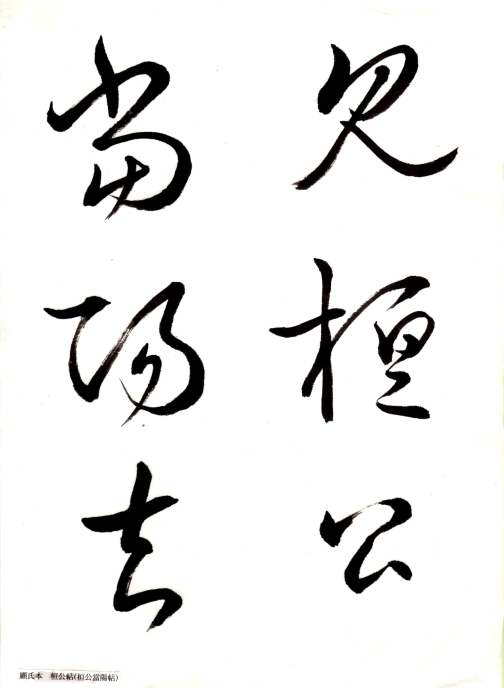 又桓公
當陽去
顧氏本 桓公帖(桓公當陽帖)